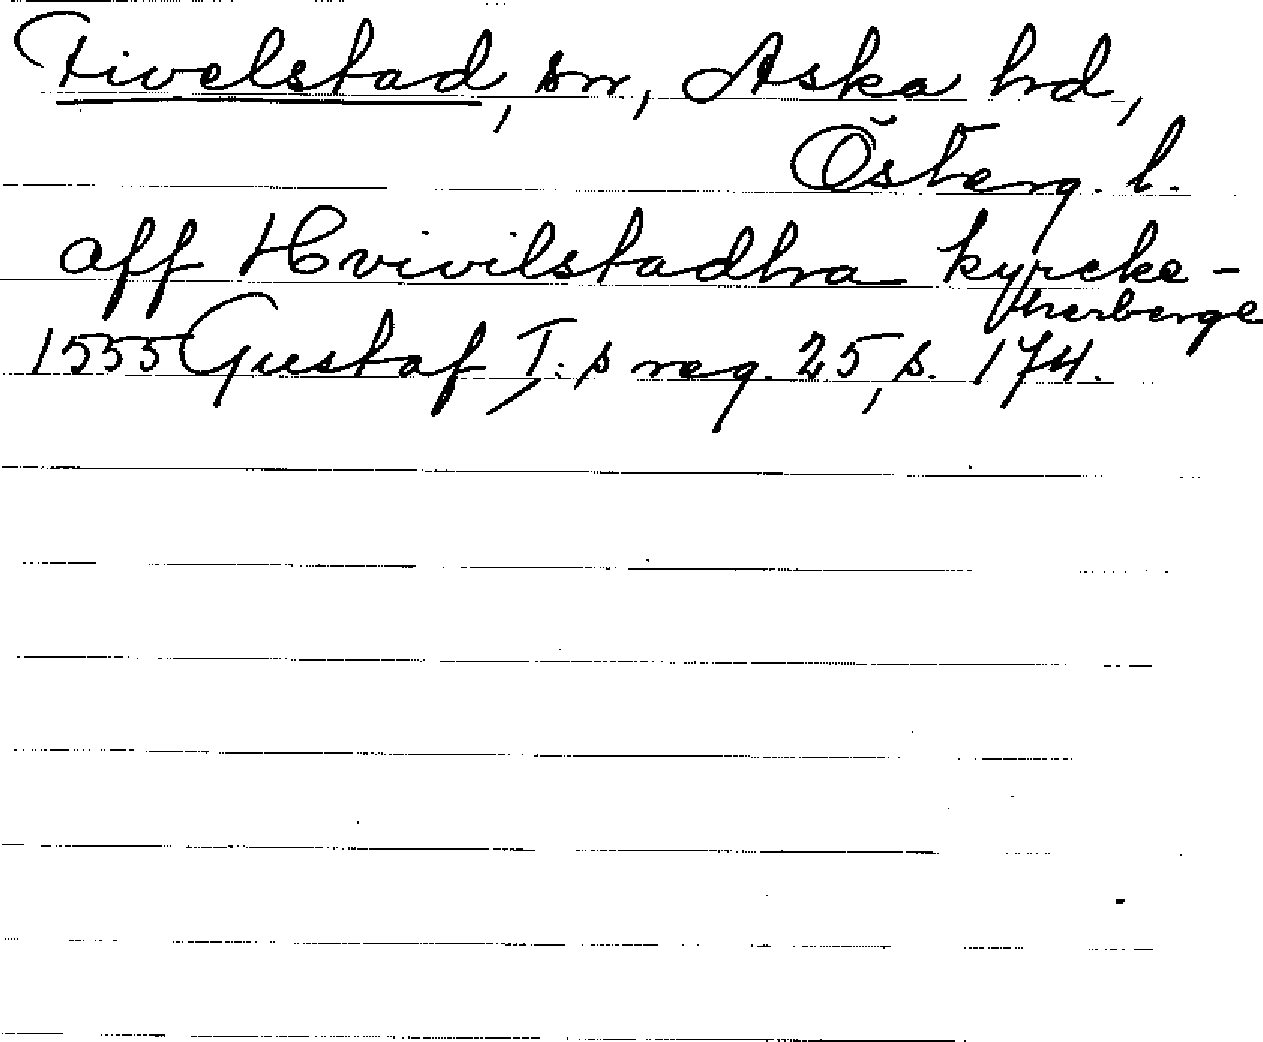 Fivelstad, sn, Aska hd,
Österg. l.
aff Hvivilstadhra kyrcke-
herberge
1555 Gustaf I:s reg. 25, s. 174.